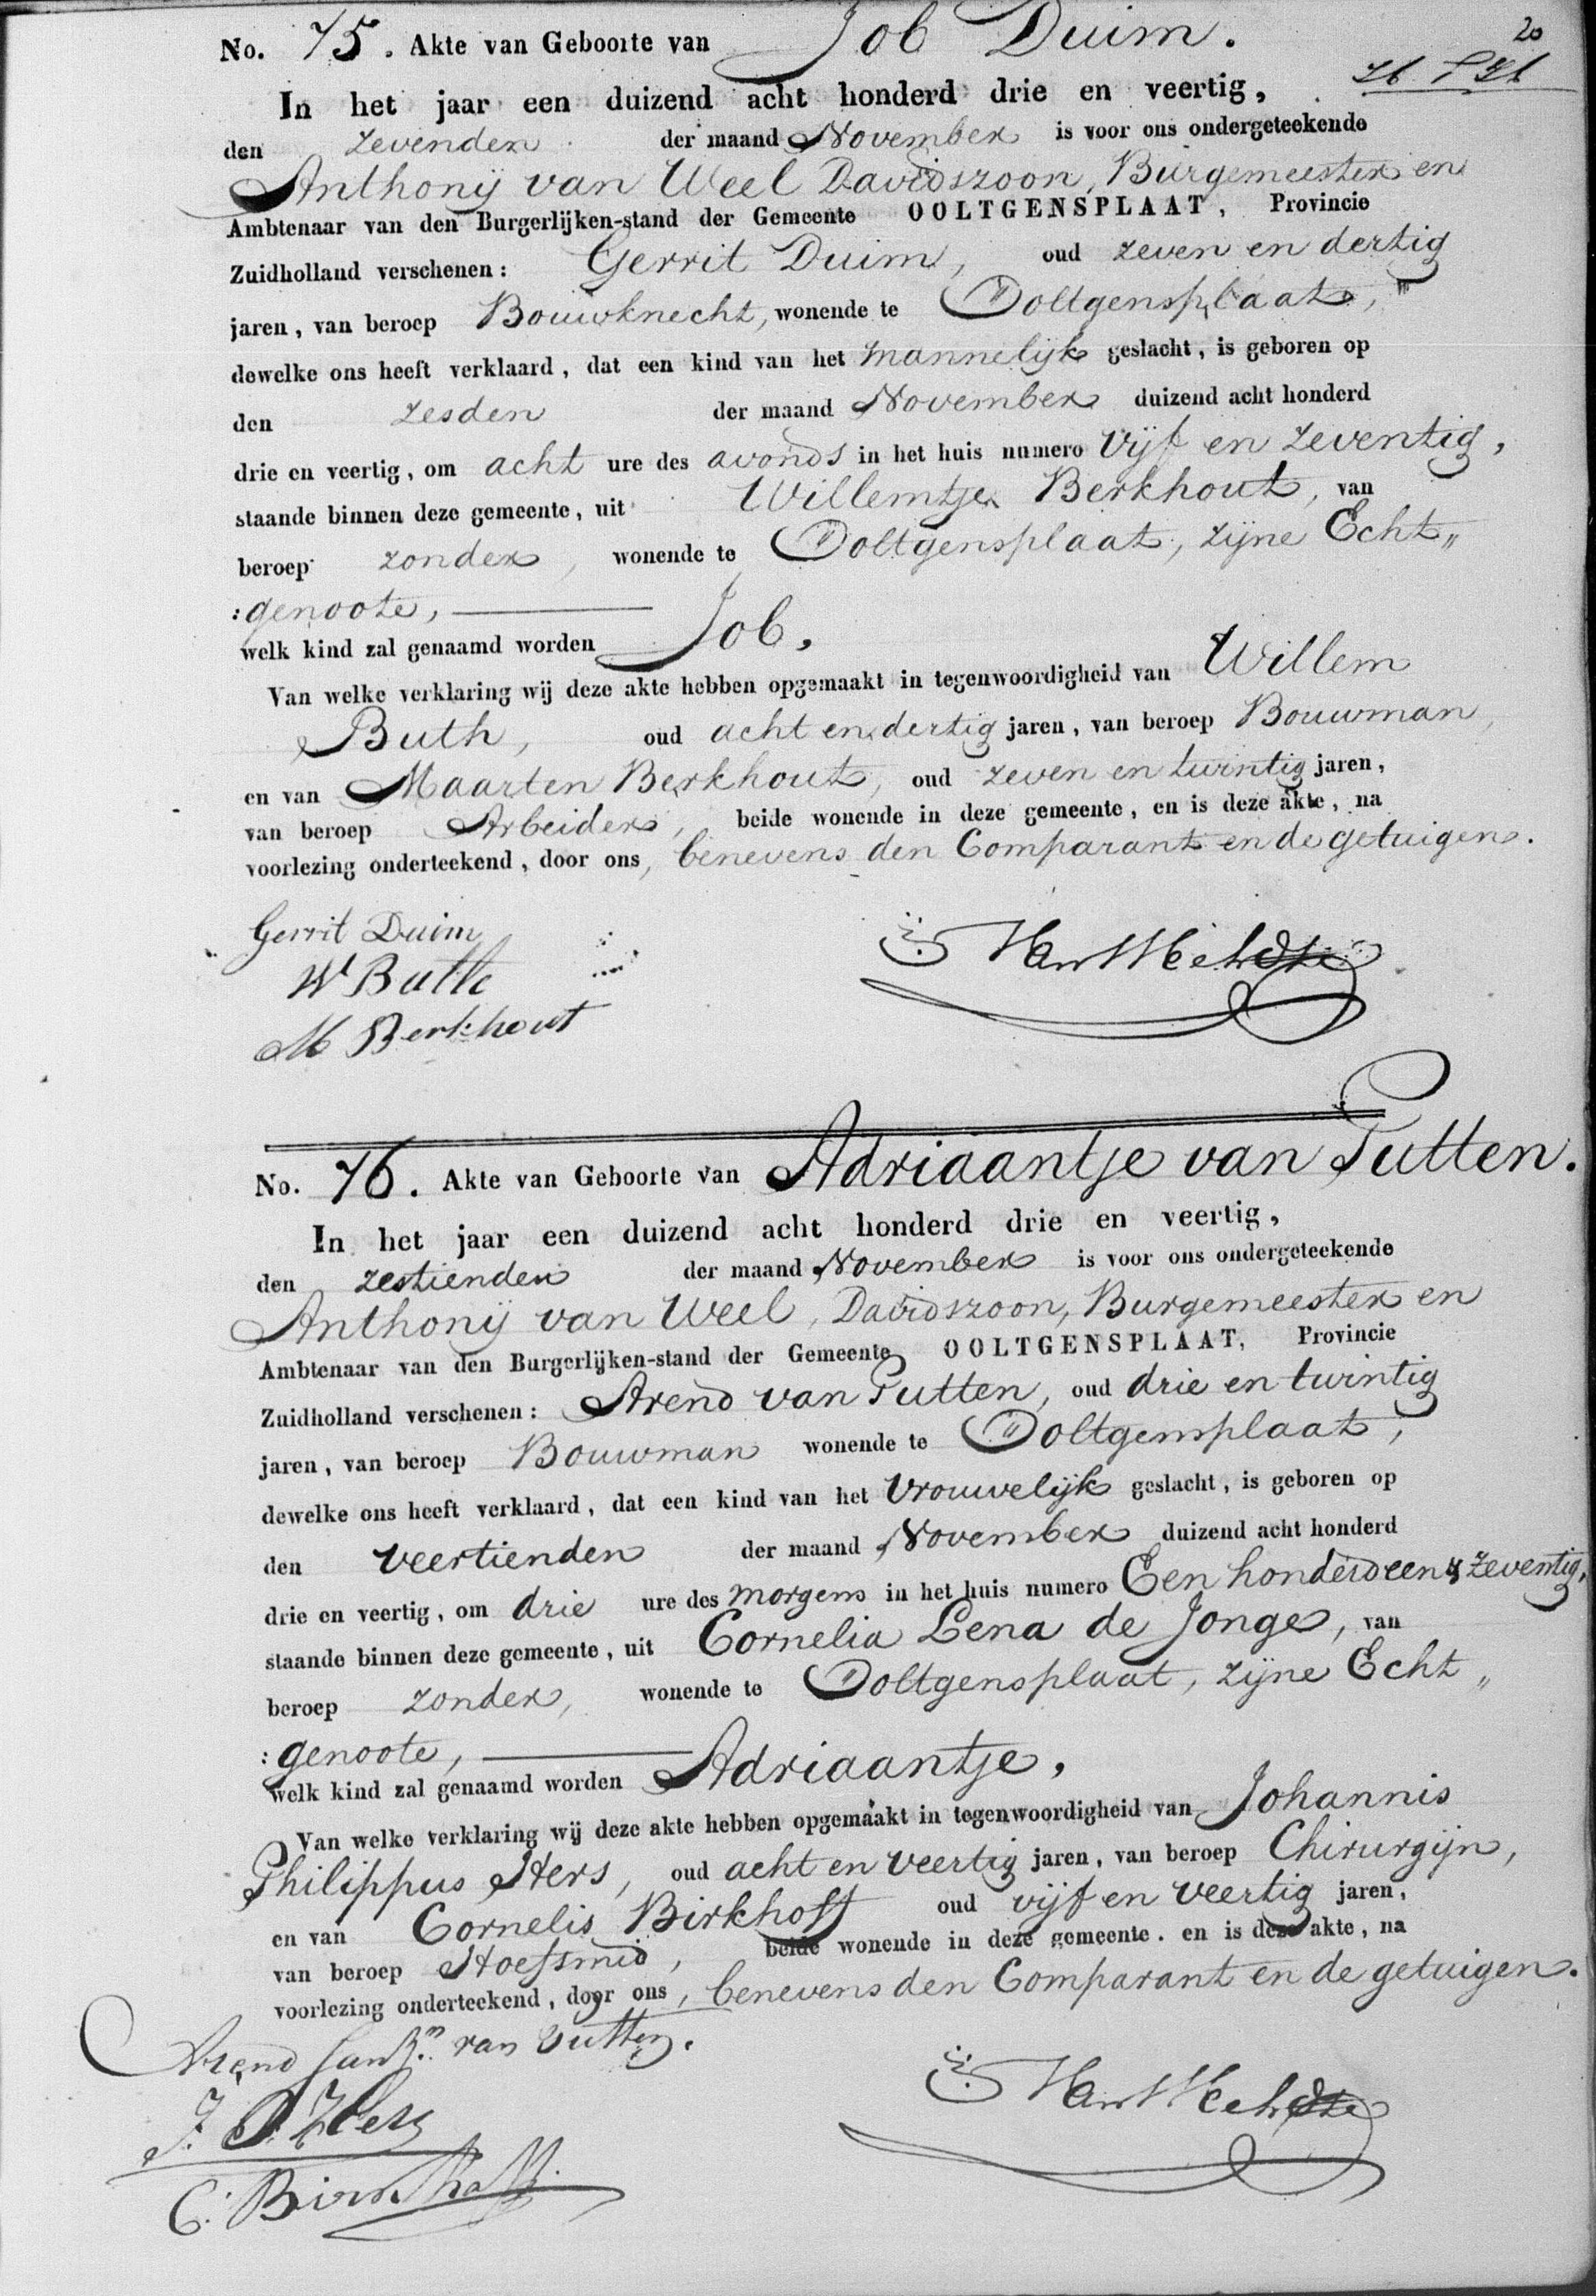 20
No. 75. Akte van Geboorte van Job Duim.
In het jaar een duizend acht honderd drie en veertig,
den zevenden der maand November is voor ons ondergeteekende
Anthonij van Weel Davidszoon, Burgemeester en
Ambtenaar van den Burgerlijken-stand der Gemeente OOLTGENSPLAAT, Provincie
Zuidholland verschenen: Gerrit Duim, oud zeven en dertig
jaren, van beroep Bouwknecht, wonende te Ooltgensplaat,
dewelke ons heeft verklaard, dat een kind van het mannelijk geslacht, is geboren op
den zesden der maand November duizend acht honderd
drie en veertig, om acht ure des avonds in het huis numero vijf en zeventig,
staande binnen deze gemeente, uit Willemtje Berkhout, van
beroep zonder, wonende te Ooltgensplaat, zijne Echt„
:genoote,
welk kind zal genaamd worden Job,
Van welke verklaring wij deze akte hebben opgemaakt in tegenwoordigheid van Willem
Buth, oud acht en dertig jaren, van beroep Bouwman,
en van Maarten Berkhout, oud zeven en twintig jaren,
van beroep Arbeider, beide wonende in deze gemeente, en is deze akte, na
voorlezing onderteekend, door ons, benevens den Comparant en de getuigen.
Gerrit Duim
W Buth
M Berkhout
No. 76. Akte van Geboorte van Adriaantje van Putten.
In het jaar een duizend acht honderd drie en veertig,
den zestienden der maand November is voor ons ondergeteekende
Anthonij van Weel, Davidszoon, Burgemeester en
Ambtenaar van den Burgerlijken-stand der Gemeente OOLTGENSPLAAT, Provincie
Zuidholland verschenen: Arend van Putten, oud drie en twintig
jaren, van beroep Bouwman wonende te Ooltgensplaat,
dewelke ons heeft verklaard, dat een kind van het Vrouwelijk geslacht, is geboren op
den veertienden der maand November duizend acht honderd
drie en veertig, om drie ure des morgens in het huis numero Een honderd een & zeventig,
staande binnen deze gemeente, uit Cornelia Lena de Jonge, van
beroep zonder, wonende te Ooltgensplaat, zijne Echt„
:genoote,
welk kind zal genaamd worden Adriaantje,
Van welke verklaring wij deze akte hebben opgemaakt in tegenwoordigheid van Johannis
Philippus Hers, oud acht en veertig jaren, van beroep Chirurgijn,
en van Cornelis Birkhoff oud vijf en veertig jaren,
van beroep Hoefsmid, beide wonende in deze gemeente. en is deze akte, na
voorlezing onderteekend, door ons, benevens den Comparant en de getuigen.
Arend van Putten.
J. P. Hers
C. Birkhoff